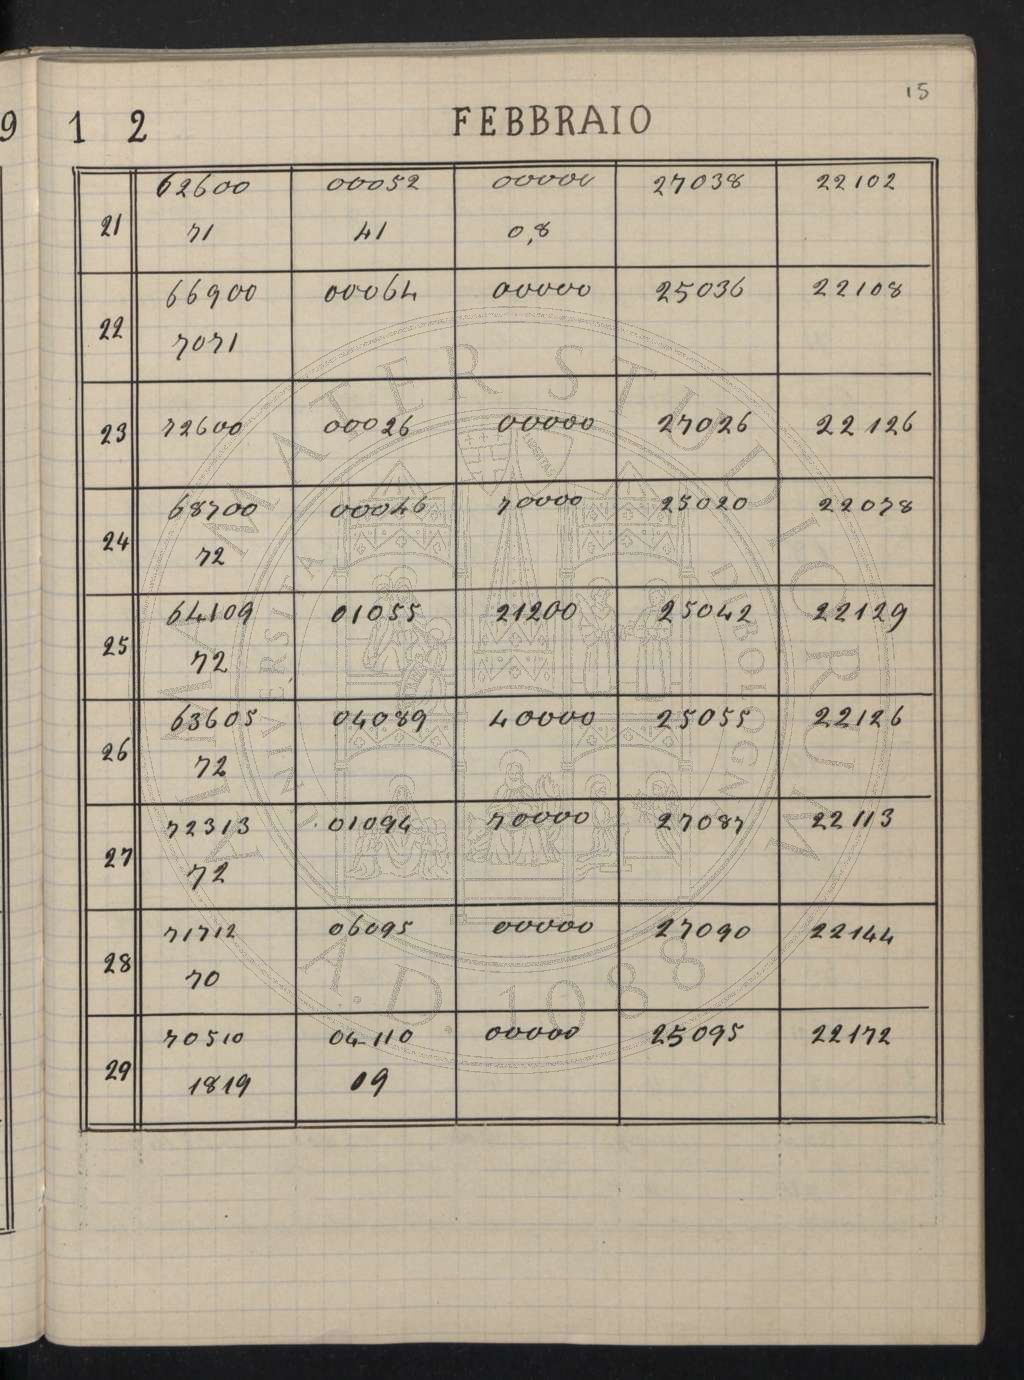 15
9 1 2 FEBBRAIO
21 62600 00052 00000 27038 22102
71 41 0,8
22 66900 00064 00000 25036 22108
7071
23 72600 00026 00000 27026 22126
24 68700 00046 70000 25020 22078
72
25 64109 01055 21200 25042 22129
72
26 63605 04089 40000 25055 22126
72
27 72313 01094 70000 27087 22113
72
28 71712 06095 00000 27090 22144
70
29 70510 04110 00000 25095 22172
1819 09
ALMA MATER STUDIORUM
UNIVERSITÀ DI BOLOGNA
A.D. 1088